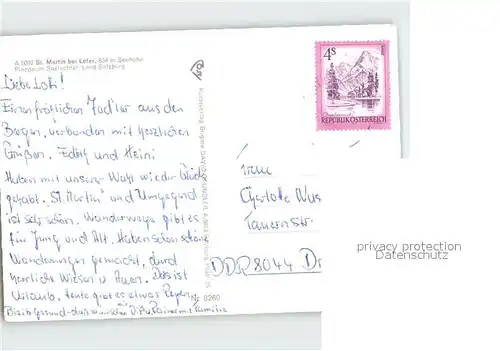 A 5092 St. Martin bei Lofer, 634 m Seehöhe
Pinzgauer Saalachtal, Land Salzburg
Liebe Loti!
Einen fröhlichen Jodler aus den
Bergen, verbunden mit herzlichen
Grüßen. Edith und Heini
Haben mit unserer Wahl wieder Glück
gehabt. St. Martin und Umgegend
ist sehr schön. Wanderwege gibt es
für Jung und Alt. Haben schon schöne
Wanderungen gemacht, durch
herrliche Wiesen u. Auen. Das ist
Urlaub. Heute gibt es etwas Regen.
Bleib gesund - das wünschen Dir Familie
Nr. 8260
4S
REPUBLIK ÖSTERREICH
Frau
Charlotte Wus
Tauernstr
DDR 8044 Dr
privacy protection
Datenschutz